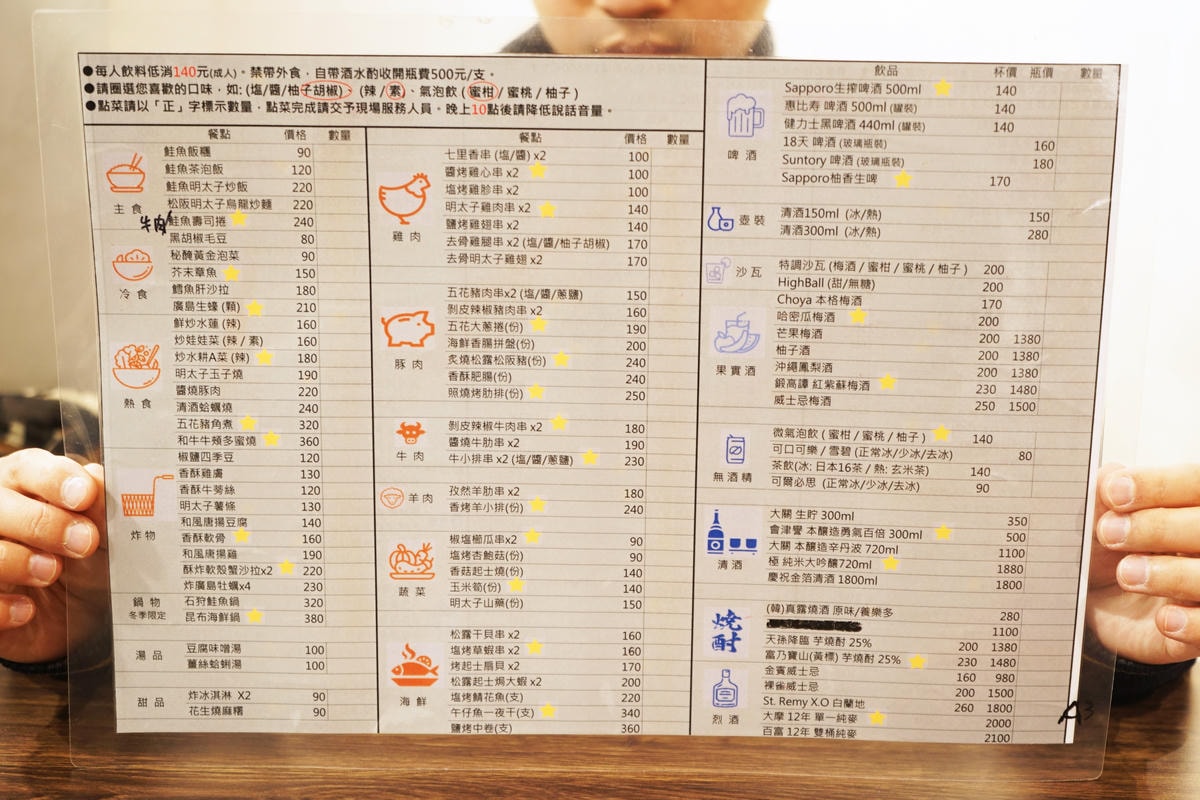 ●每人飲料低消140元(成人)。禁帶外食，自帶酒水酌收開瓶費500元/支。
●請圈選您喜歡的口味，如: (塩/醬/柚子胡椒)、(辣 / 素)、氣泡飲 ( 蜜柑 / 蜜桃 / 柚子 )
●點菜請以「正」字標示數量，點菜完成請交予現場服務人員。晚上10點後請降低說話音量。
餐點 價格 數量
主食
鮭魚飯糰 90
鮭魚茶泡飯 120
鮭魚明太子炒飯 220
松阪明太子烏龍炒麵 220
牛肉/鮭魚壽司捲 240
冷食
黑胡椒毛豆 80
秘醃黃金泡菜 90
芥末章魚 150
鱈魚肝沙拉 180
廣島生蠔 (顆) 210
熱食
鮮炒水蓮 (辣) 160
炒娃娃菜 (辣 / 素) 160
炒水耕A菜 (辣) 180
明太子玉子燒 190
醬燒豚肉 220
清酒蛤蠣燒 240
五花豬角煮 320
和牛牛頰多蜜燒 360
炸物
椒鹽四季豆 120
香酥雞膚 130
香酥牛蒡絲 120
明太子薯條 130
和風唐揚豆腐 140
香酥軟骨 160
和風唐揚雞 190
酥炸軟殼蟹沙拉x2 220
炸廣島牡蠣x4 230
鍋物
冬季限定
石狩鮭魚鍋 320
昆布海鮮鍋 380
湯品
豆腐味噌湯 100
薑絲蛤蜊湯 100
甜品
炸冰淇淋 X2 90
花生燒麻糬 90
餐點 價格 數量
雞肉
七里香串 (塩/醬) x2 100
醬烤雞心串 x2 100
塩烤雞胗串 x2 100
明太子雞肉串 x2 140
鹽烤雞翅串 x2 140
去骨雞腿串 x2 (塩/醬/柚子胡椒) 170
去骨明太子雞翅 x2 170
豚肉
五花豬肉串x2 (塩/醬/蔥鹽) 150
剝皮辣椒豬肉串 x2 160
五花大蔥捲(份) 190
海鮮香腸拼盤(份) 200
炙燒松露松阪豬(份) 240
香酥肥腸(份) 240
照燒烤肋排(份) 250
牛肉
剝皮辣椒牛肉串 x2 180
醬燒牛肋串 x2 190
牛小排串 x2 (塩/醬/蔥鹽) 230
羊肉
孜然羊肋串 x2 180
香烤羊小排(份) 240
蔬菜
椒塩櫛瓜串x2 90
塩烤杏鮑菇(份) 90
香菇起士燒(份) 140
玉米筍(份) 140
明太子山藥(份) 150
海鮮
松露干貝串 x2 160
塩烤草蝦串 x2 160
烤起士扇貝 x2 170
松露起士焗大蝦 x2 200
塩烤鯖花魚(支) 220
午仔魚一夜干(支) 340
鹽烤中卷(支) 360
飲品 杯價 瓶價 數量
啤酒
Sapporo生搾啤酒 500ml 140
惠比寿 啤酒 500ml (罐裝) 140
健力士黑啤酒 440ml (罐裝) 140
18天 啤酒 (玻璃瓶裝) 160
Suntory 啤酒 (玻璃瓶裝) 180
Sapporo柚香生啤 170
壺裝
清酒150ml (冰/熱) 150
清酒300ml (冰/熱) 280
沙瓦
特調沙瓦 (梅酒 / 蜜柑 / 蜜桃 / 柚子 ) 200
HighBall (甜/無糖) 200
果實酒
Choya 本格梅酒 170
哈密瓜梅酒 200
芒果梅酒 200 1380
柚子酒 200 1380
沖繩鳳梨酒 200 1380
鍛高譚 紅紫蘇梅酒 230 1480
威士忌梅酒 250 1500
無酒精
微氣泡飲 ( 蜜柑 / 蜜桃 / 柚子 ) 140
可口可樂 / 雪碧 (正常冰/少冰/去冰) 80
茶飲(冰: 日本16茶 / 熱: 玄米茶) 140
可爾必思 (正常冰/少冰/去冰) 90
清酒
大關 生貯 300ml 350
會津譽 本釀造勇氣百倍 300ml 500
大關 本釀造辛丹波 720ml 1100
極 純米大吟釀720ml 1880
慶祝金箔清酒 1800ml 1800
燒酎
(韓)真露燒酒 原味/養樂多 280
1100
天孫降臨 芋燒酎 25% 200 1380
富乃寶山(黃標) 芋燒酎 25% 230 1480
烈酒
金賓威士忌 160 980
裸雀威士忌 200 1500
St. Remy X.O 白蘭地 260 1800
大摩 12年 單一純麥 2000
百富 12年 雙桶純麥 2100
A3